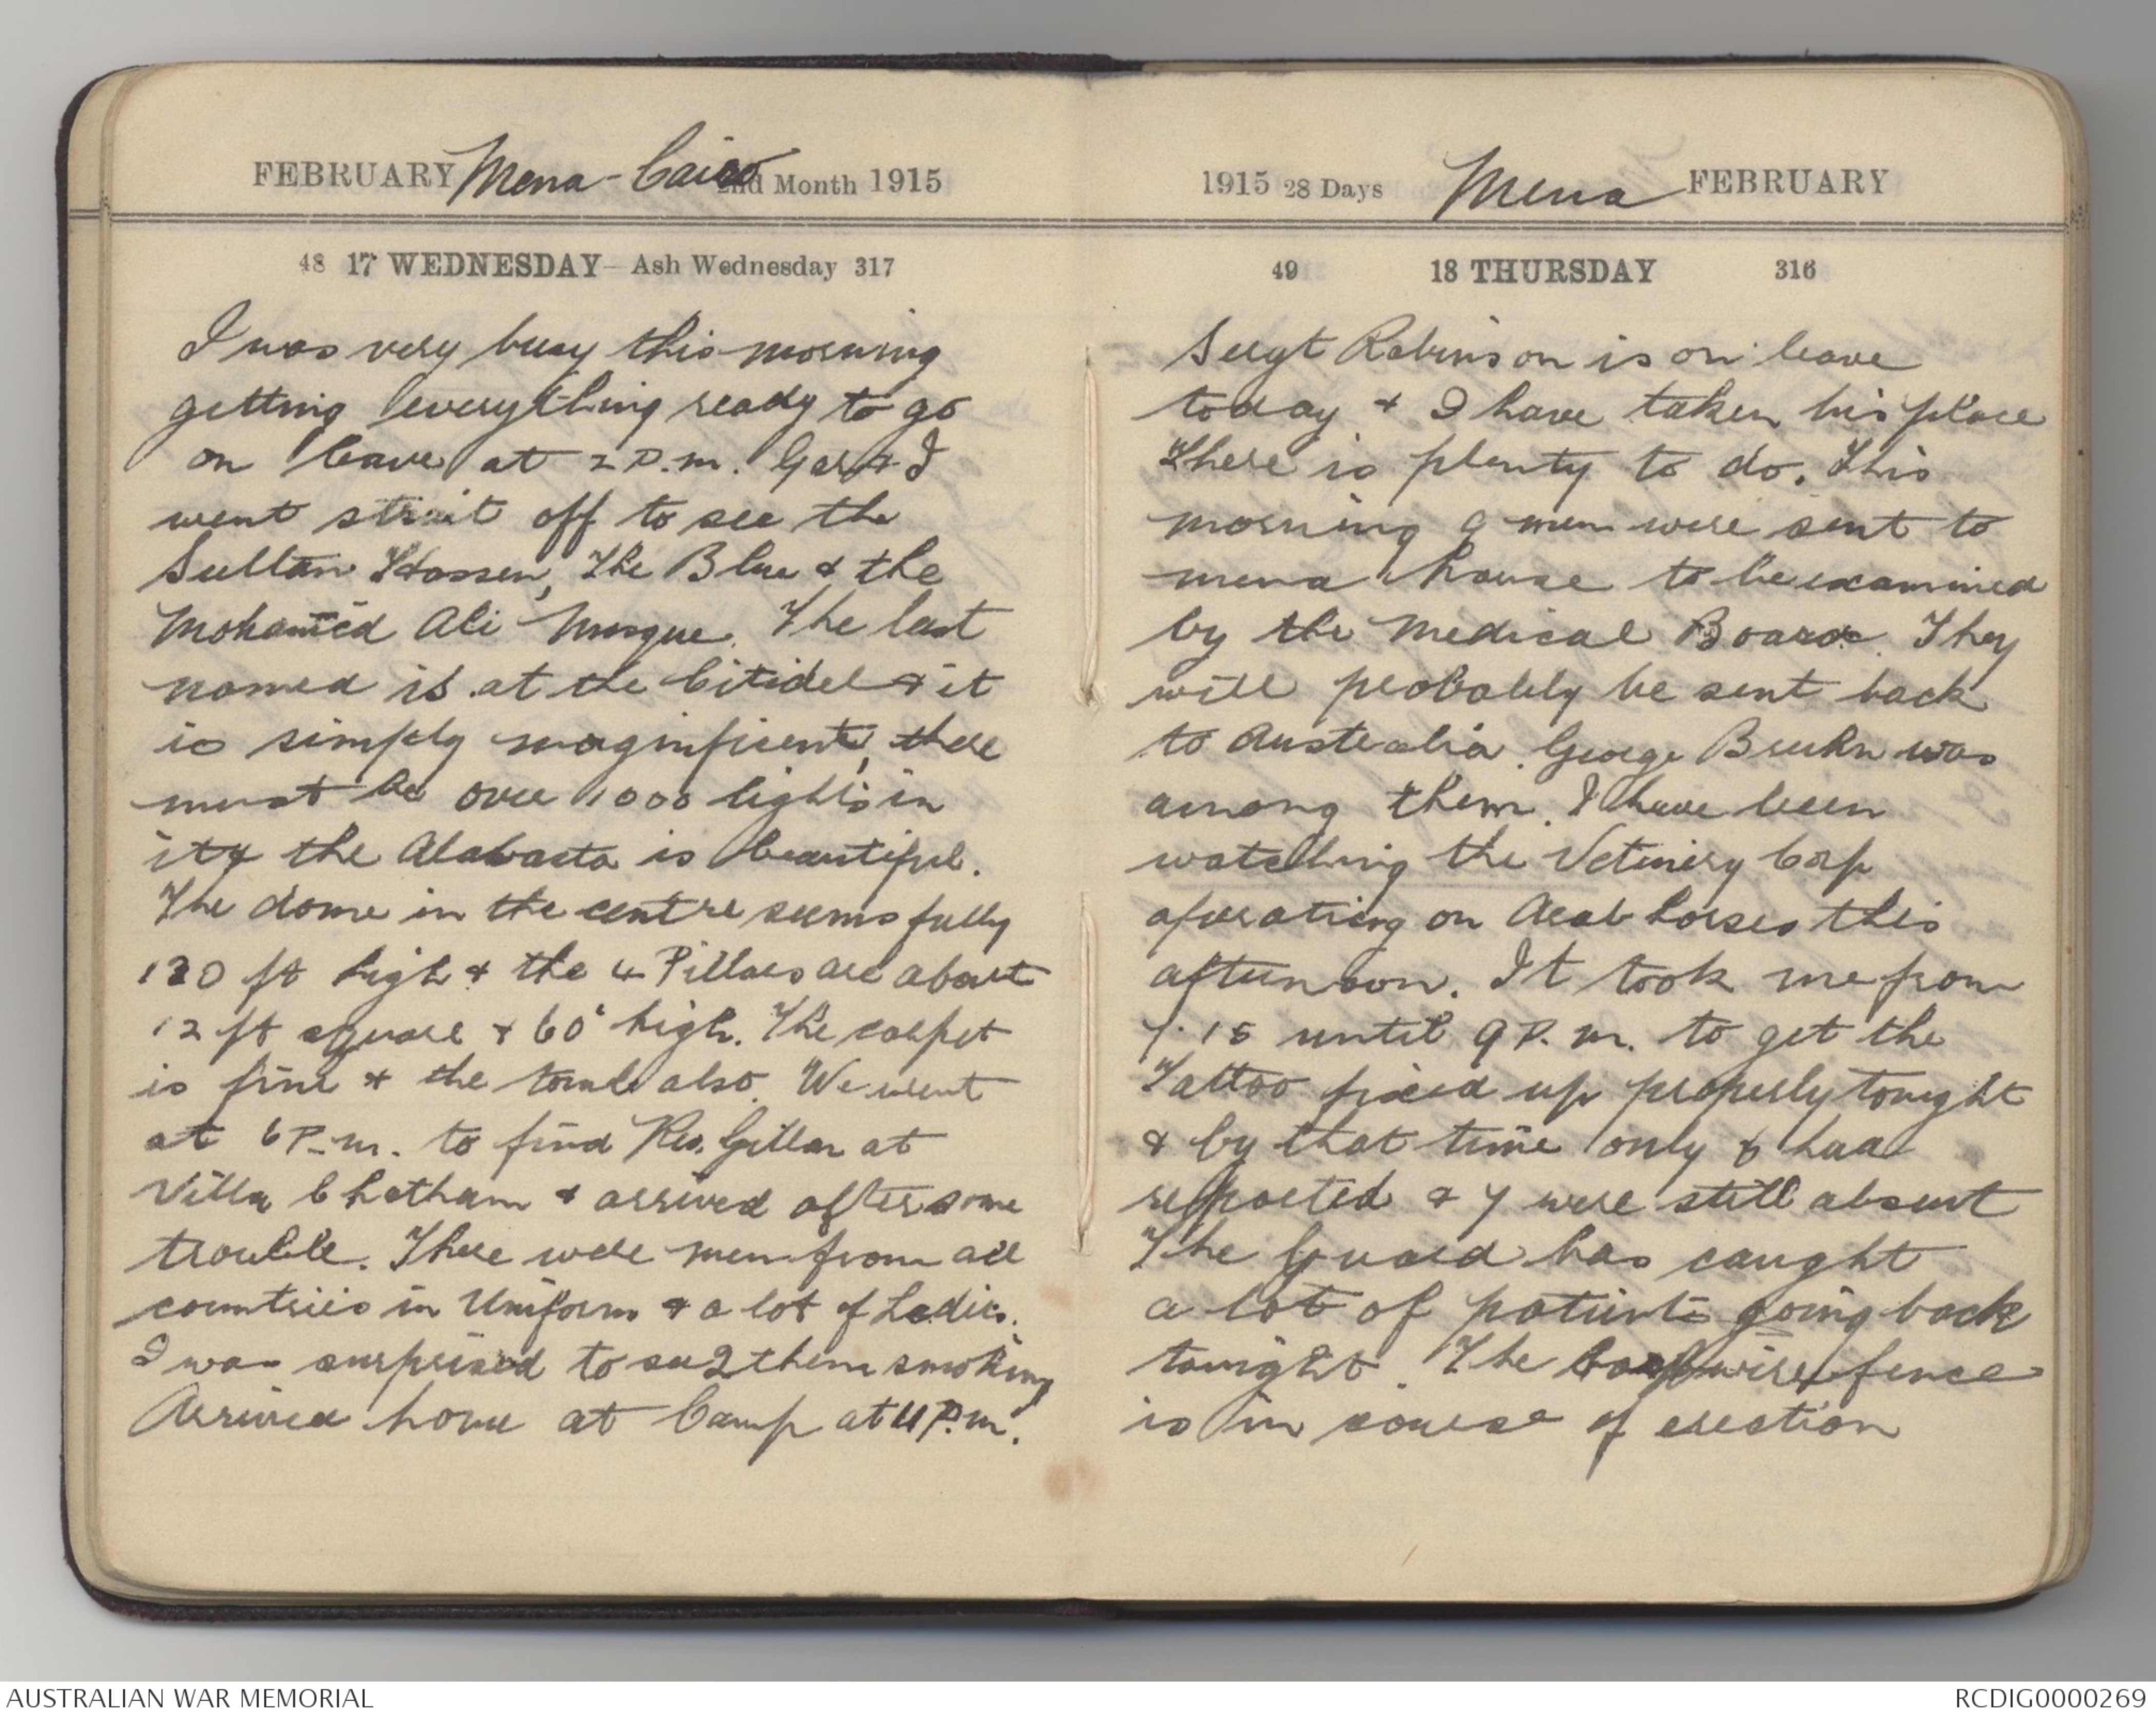 FEBRUARY Mena - Cairo 2nd Month 1915
48 17 WEDNESDAY – Ash Wednesday 317
I was very busy this morning
getting everything ready to go
on leave at 2 P.m. & I
went strait off to see the
Sultan Hossen, The Blue & the
Mohamed Ali Mosque. The last
named is at the Citidel & it
is simply maginficent, there
must be over 1000 lights in
it & the Alabasta is beautiful.
The dome in the centre seems fully
120 ft high & the 4 Pillars are about
12 ft square & 60' high. The carpet
is fine & the tomb also. We went
at 6 P.m. to find Rev. Gillan at
Villa Chatham & arrived after some
trouble. There were men from all
countries in Uniform & a lot of Ladies.
I was surprised to see 2 them smoking
Arrived home at Camp at 11 P.m.
1915 28 Days Mena FEBRUARY
49 18 THURSDAY 316
Sergt Robinson is on leave
today & I have taken his place
There is plenty to do. This
morning 9 men were sent to
mena house to be examined
by the Medical Board. They
will probably be sent back
to Australia. George was
among them. I have been
watching the Vetinery Corp
operating on Arab horses this
afternoon. It took me from
7.15 until 9 P.m. to get the
Tattoo fixed up properly tonight
& by that time only had
reported & 7 were still absent
The Guard has caught
a lot of patients going back
tonight. The wire fence
is in course of erection
AUSTRALIAN WAR MEMORIAL
RCDIG0000269